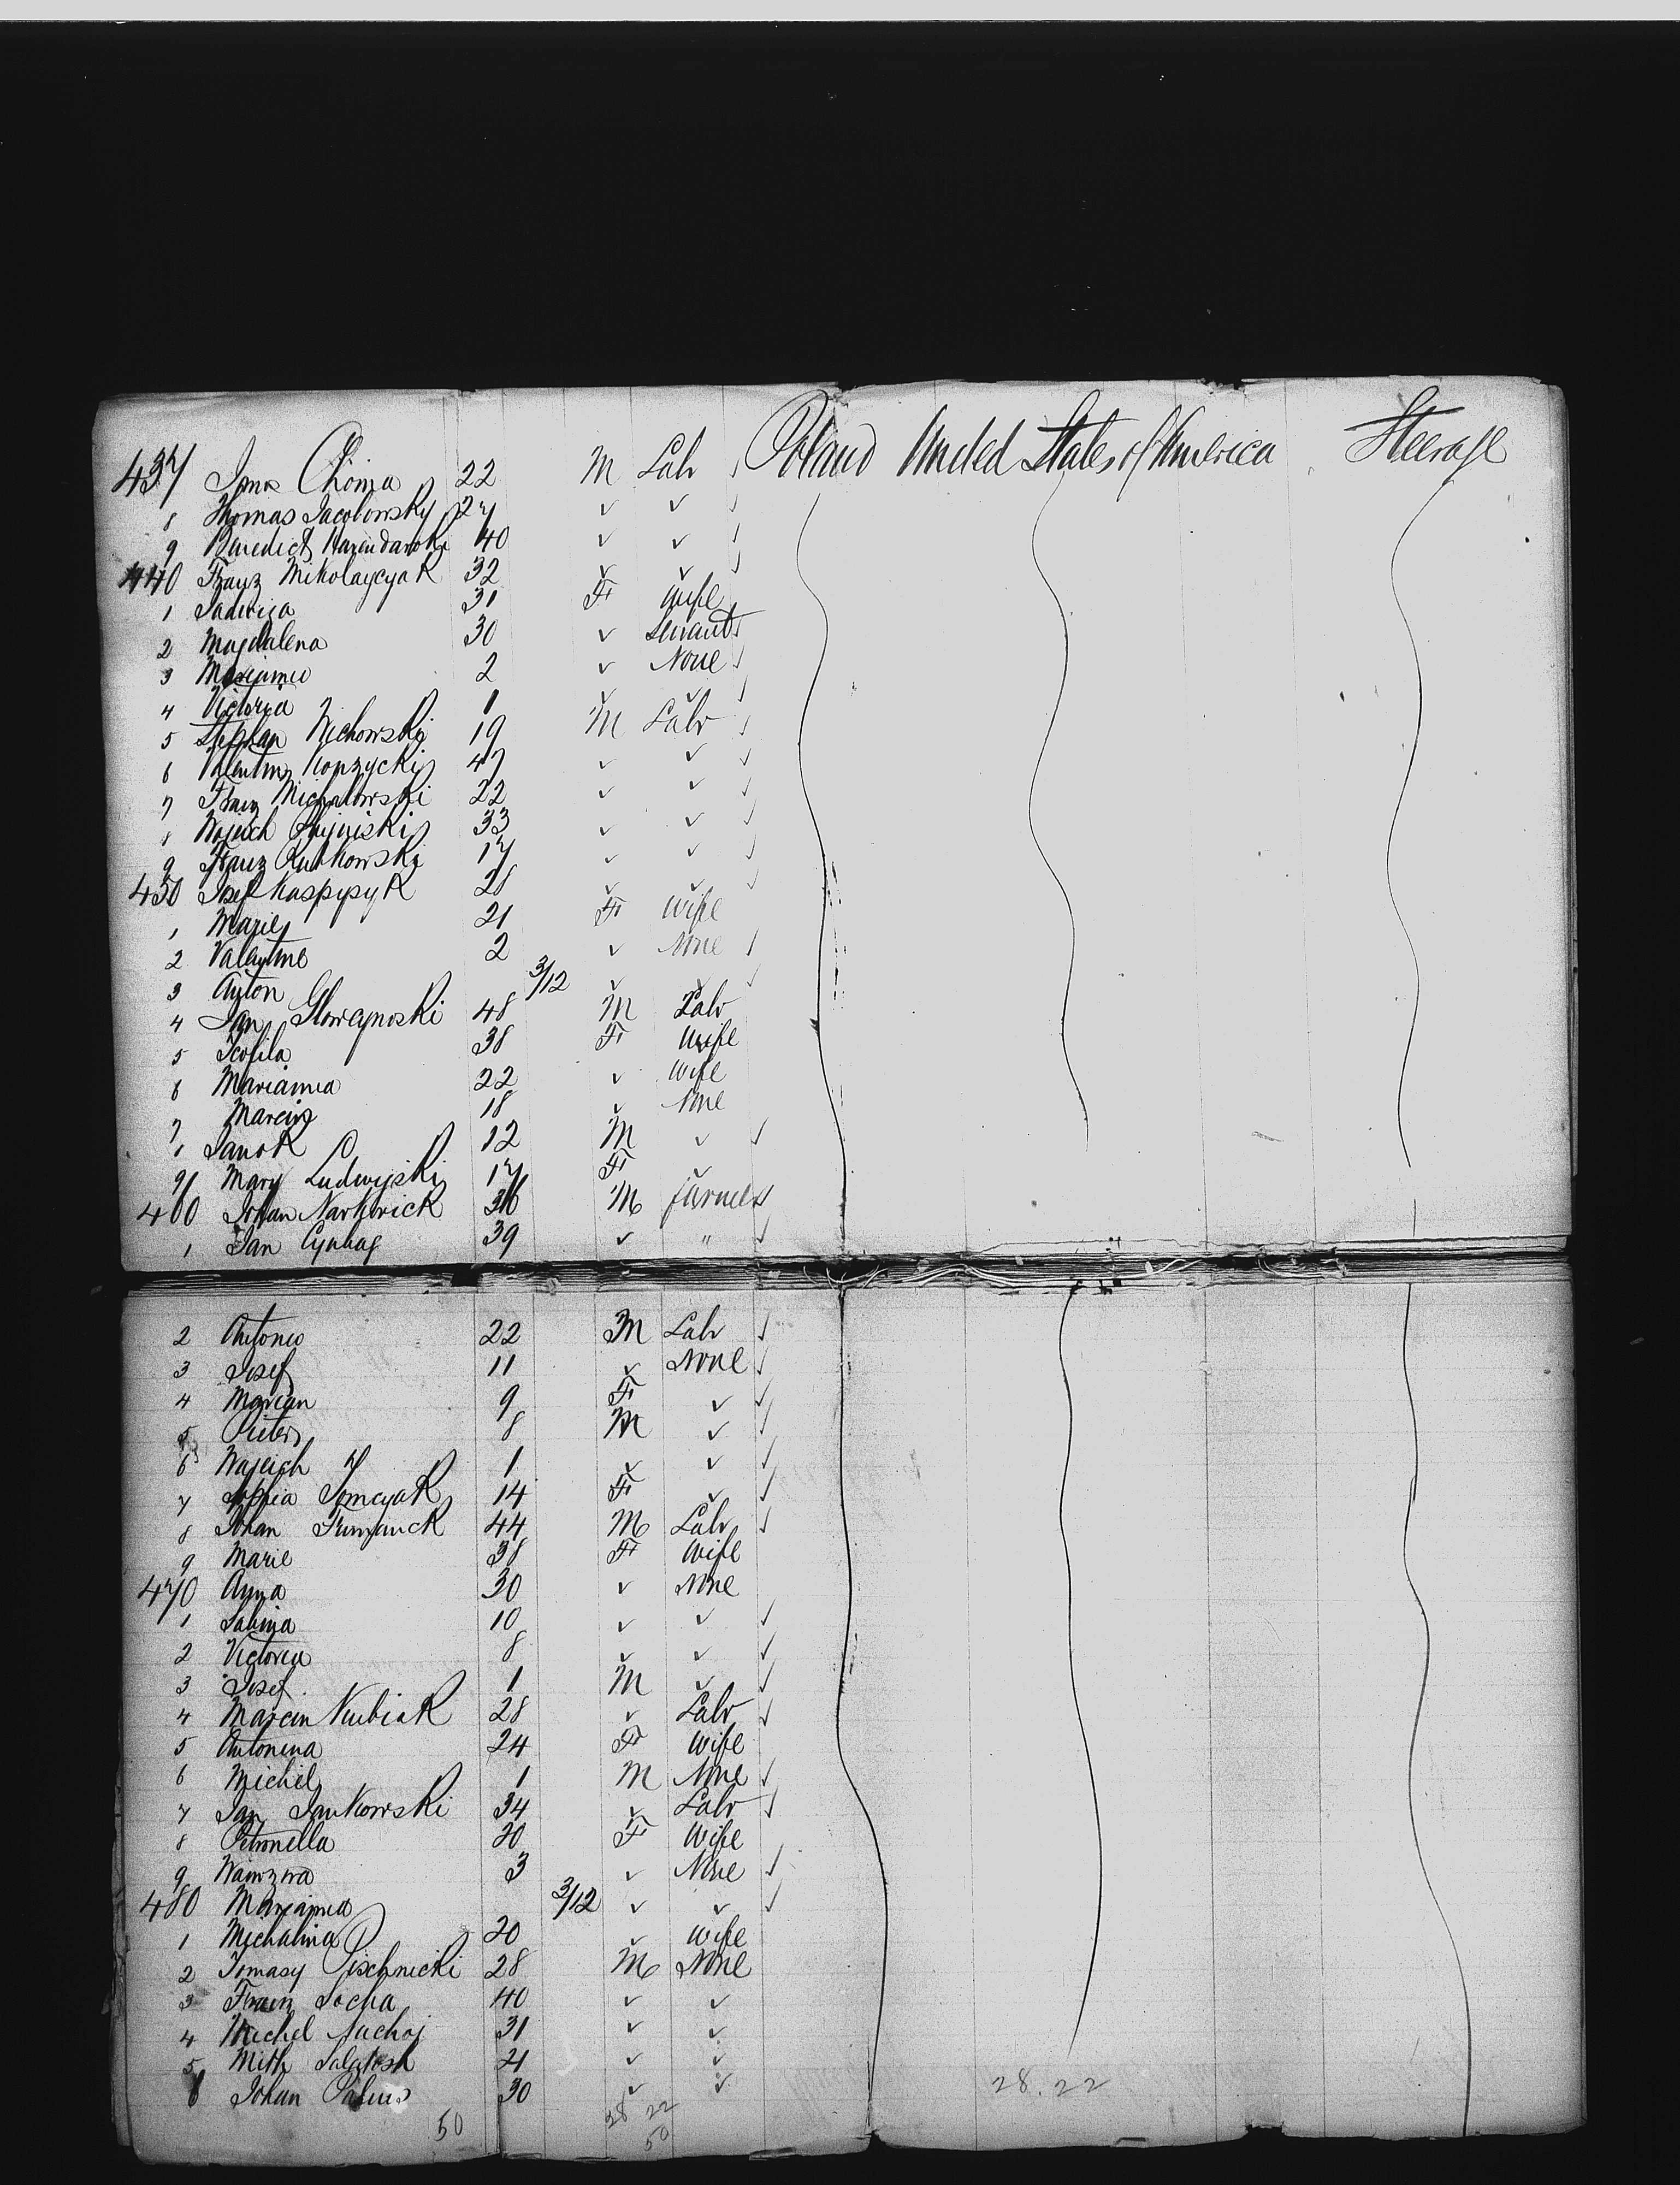 437 Choma 22 M Labr Poland United States of America Steerage
8 Thomas Jacobowsky 27 ✓ ✓
9 Benedict 40 ✓ ✓
440 Franz Mikolaycyak 32 ✓ ✓
1 Jadwiga 31 F Wife
2 Magdalena 30 ✓ Servant
3 Marianna 2 ✓ None
4 Victoria 1 ✓ ✓
5 Stephan Nichowski 19 M Labr
6 Valentin Kopzycki 47 ✓ ✓
7 Franz Michalowski 22 ✓ ✓
8 Wojcich 33 ✓ ✓
9 Franz Rutkowski 17 ✓ ✓
450 Josef Kaspzyk 28 ✓ ✓
1 Marie 21 F Wife
2 Valentine 2 ✓ None
3 Anton 3/12 ✓ ✓
4 Jan Glowcynoski 48 M Labr
5 Teofila 38 F Wife
6 Marianna 22 ✓ Wife
7 Marcin 18 ✓ None
8 Janok 12 M ✓
9 Mary Ludwyski 17 F ✓
460 Johan Narkwick 36 M farmer
1 Jan 39 ✓ "
2 Antonio 22 M Labr
3 Josef 11 ✓ None
4 Marian 9 F ✓
5 Pieter 8 M ✓
6 Wojcich 1 ✓ ✓
7 Sophia Tomcyak 14 F ✓
8 Johan 44 M Labr
9 Marie 38 F Wife
470 Anna 30 ✓ None
1 Sabina 10 ✓ ✓
2 Victoria 8 ✓ ✓
3 Josef 1 M ✓
4 Marcin Kubiak 28 ✓ Labr
5 Antonina 24 F Wife
6 Michel 1 M None
7 Jan Jankowski 34 ✓ Labr
8 Petronella 20 F Wife
9 3 ✓ None
480 Marianna 3/12 ✓ ✓
1 Michalina 20 ✓ Wife
2 Tomasy Pischnicki 28 M None
3 Franz Socha 40 ✓ ✓
4 Michel 31 ✓ ✓
5 21 ✓ ✓
6 Johan 30 ✓ ✓
28.22
50 28 22
50